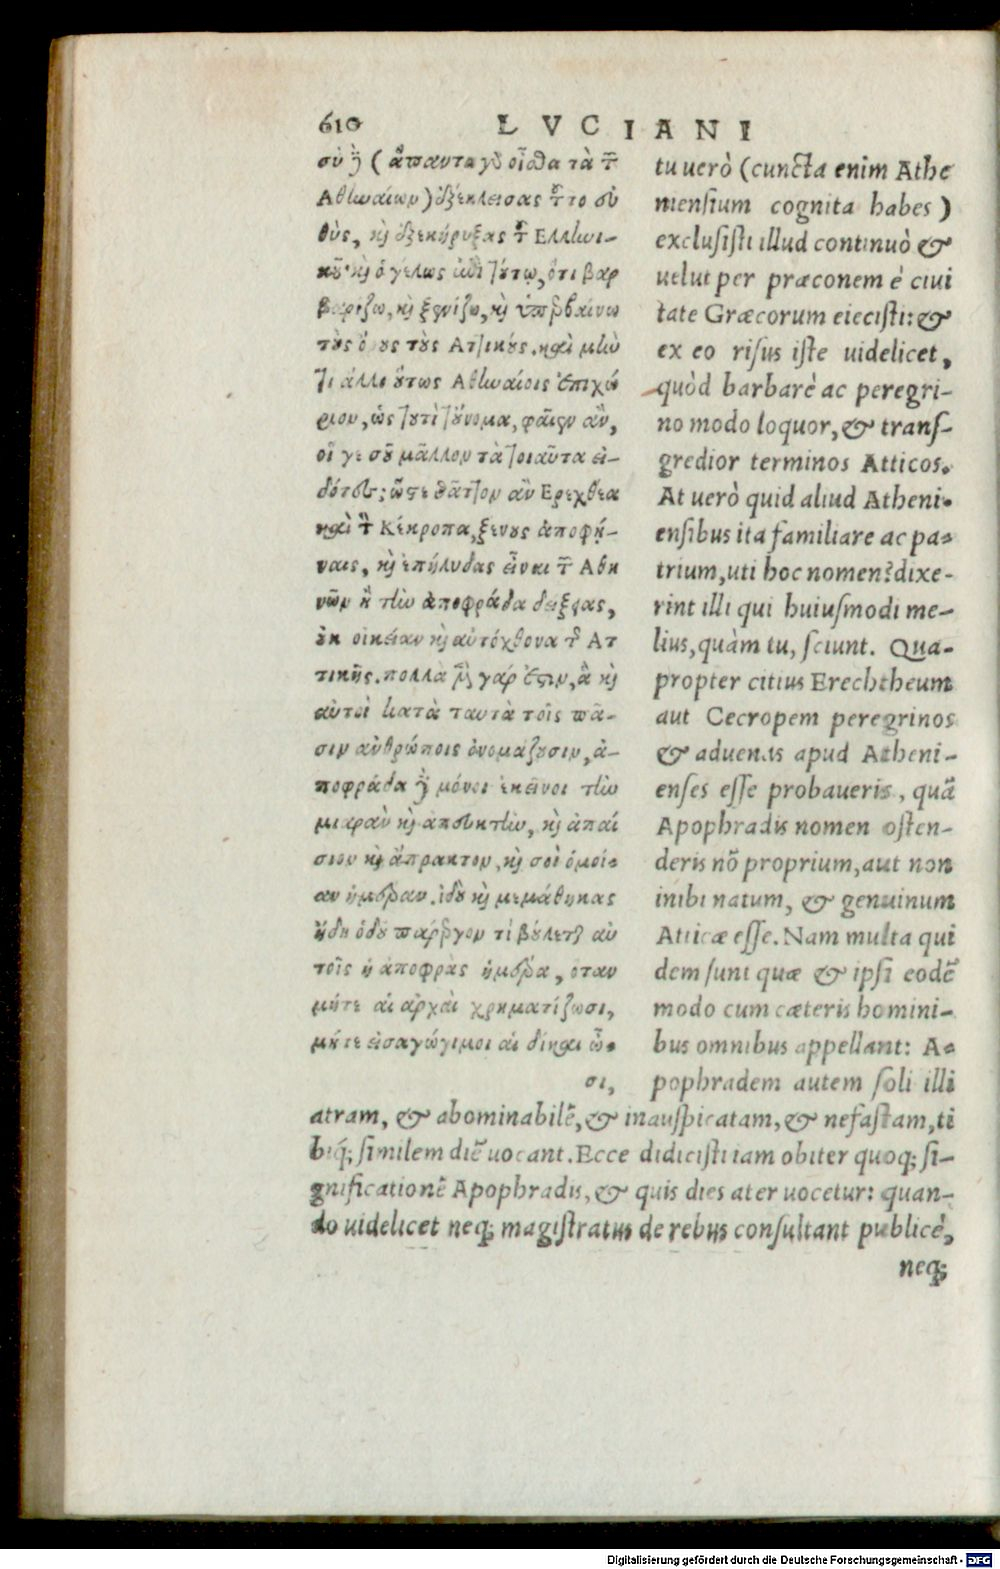 610 LVCIANI
σὺ δὲ (ἅπαντα γὰρ οἶσθα τὰ τῶν
Ἀθηναίων) ἐξέκλεισας τοῦτο εὐ
θὺς, καὶ ἐξεκήρυξας τοῦ Ἑλληνι-
κοῦ· καὶ ὁ γέλως ἐπὶ τούτῳ, ὅτι βαρ
βαρίζω, καὶ ξενίζω, καὶ ὑπερβαίνω
τοὺς ὅρους τοὺς Ἀττικούς. καὶ μὴν
τί ἄλλο οὕτως Ἀθηναίοις ἐπιχώ
ριον, ὡς τουτὶ τοὔνομα, φαῖεν ἂν,
οἵ γε σοῦ μᾶλλον τὰ τοιαῦτα εἰ-
δότες; ὥστε θᾶττον ἂν Ἐρεχθέα
καὶ τὸν Κέκροπα, ξένους ἀποφή-
ναις, καὶ ἐπήλυδας εἶναι τῶν Ἀθη
νῶν ἢ τὴν ἀποφράδα δείξεας,
οὐκ οἰκείαν καὶ αὐτόχθονα τῆς Ἀτ
τικῆς. πολλὰ μὲν γάρ ἐστιν, ἃ καὶ
αὐτοὶ κατὰ ταυτὰ τοῖς πᾶ-
σιν ἀνθρώποις ὀνομάζουσιν, ἀ-
ποφράδα δὲ μόνοι ἐκεῖνοι τὴν
μιαρὰν καὶ ἀπευκτὴν, καὶ ἀπαί
σιον καὶ ἄπρακτον, καὶ σοὶ ὁμοί-
αν ἡμέραν. ἰδοὺ καὶ μεμάθηκας
ἤδη ὁδοῦ πάρεργον τί βούλεται αὐ
τοῖς ἡ ἀποφρὰς ἡμέρα, ὅταν
μήτε αἱ ἀρχαὶ χρηματίζωσι,
μήτε εἰσαγώγιμοι αἱ δίκαι ὦ-
σι,
tu uerò (cuncta enim Athe
niensium cognita habes)
exclusisti illud continuò &
uelut per præconem è ciui
tate Græcorum eiecisti: &
ex eo risus iste uidelicet,
quòd barbarè ac peregri-
no modo loquor, & trans-
gredior terminos Atticos.
At uerò quid aliud Atheni-
ensibus ita familiare ac pa-
trium, uti hoc nomen? dixe-
rint illi qui huiusmodi me-
lius, quàm tu, sciunt. Qua-
propter citius Erechtheum
aut Cecropem peregrinos
& aduenas apud Atheni-
enses esse probaueris, quā
Apophradis nomen osten-
deris nō proprium, aut non
inibi natum, & genuinum
Atticæ esse. Nam multa qui
dem sunt quæ & ipsi eodē
modo cum cæteris homini-
bus omnibus appellant: A-
pophradem autem soli illi
atram, & abominabilē, & inauspicatam, & nefastam, ti
biq́; similem diē uocant. Ecce didicisti iam obiter quoq; si-
gnificationē Apophradis, & quis dies ater uocetur: quan-
do uidelicet neq; magistratus de rebus consultant publicè,
neq;
Digitalisierung gefördert durch die Deutsche Forschungsgemeinschaft - DFG